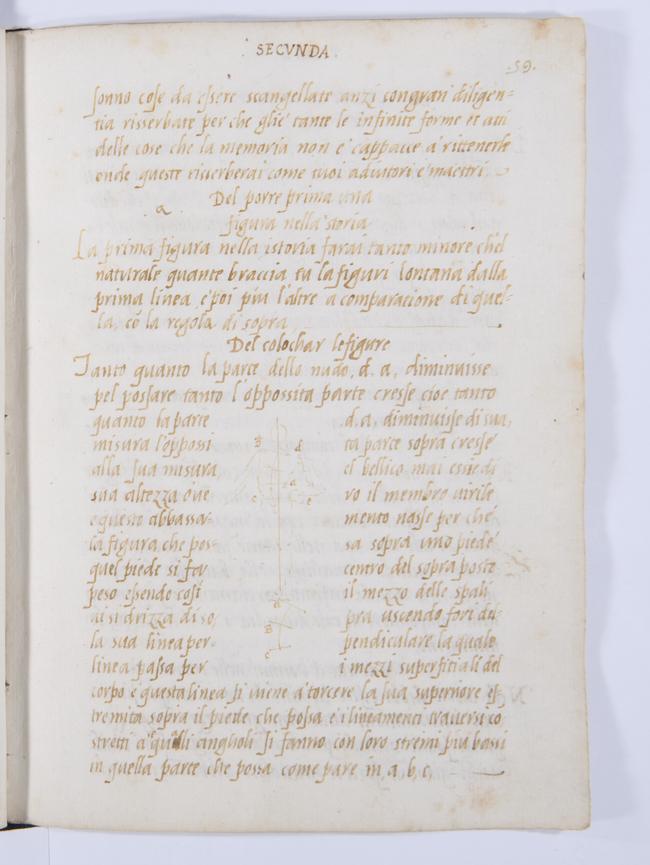 SECVNDA.
.59.
sonno cose da essere scangellate anzi con gran diligen-
tia risserbate per che glie tante le infinite forme et atti
delle cose che la memoria non e cappace a rittenerle
onde queste riserberai come tuoi adiutori e maestri.
Del porre prima una
figura nella storia
La prima figura nella istoria farai tanto minore ch'el
naturale quante braccia tu la figuri lontana dalla
prima linea e poi piu l'altre a comparatione di quel-
la, cō la regola di sopra
Del colochar le figure
Tanto quanto la parte dello nudo. d. a, diminuisse
pel possare tanto l'oppossita parte cresse cioe tanto
quanto la parte d. a. diminuisse di sua,
misura l'oppossi ta parte sopra cresse
alla sua misura el bellico mai esse di
sua altezza o ve ro il membro virile
e questo abbassa- mento nasse per che
la figura che pos- sa sopra uno piede
quel piede si fa, centro del sopra posto
peso essendo cosi il mezzo delle spali
ai si drizza di so, pra uscendo fori de-
la sua linea per- pendiculare la quale
linea passa per i mezzi superfitiali del
B
d
a
c
e
a
B
c
corpo e questa linea si viene a torcere la sua superiore es-
tremita sopra il piede che possa e i lineamenti traversi co
stretti a quali angholi si fanno con loro stremi piu bassi
in quella parte che possa come pare in, a, b, c,